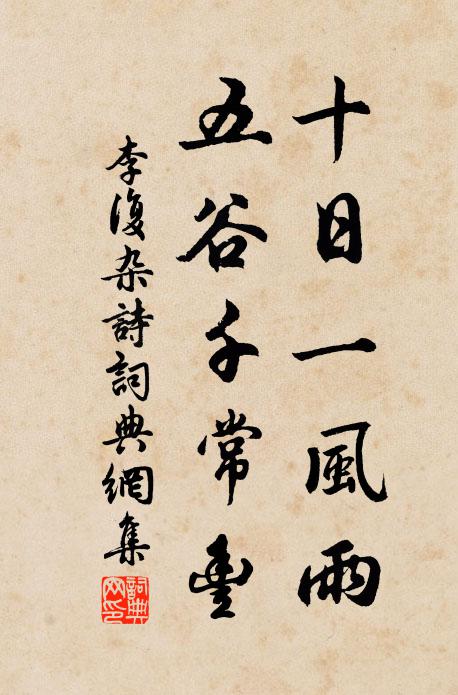 十日一風雨
五谷千常豐
李復杂詩詞典網集
詞典網印